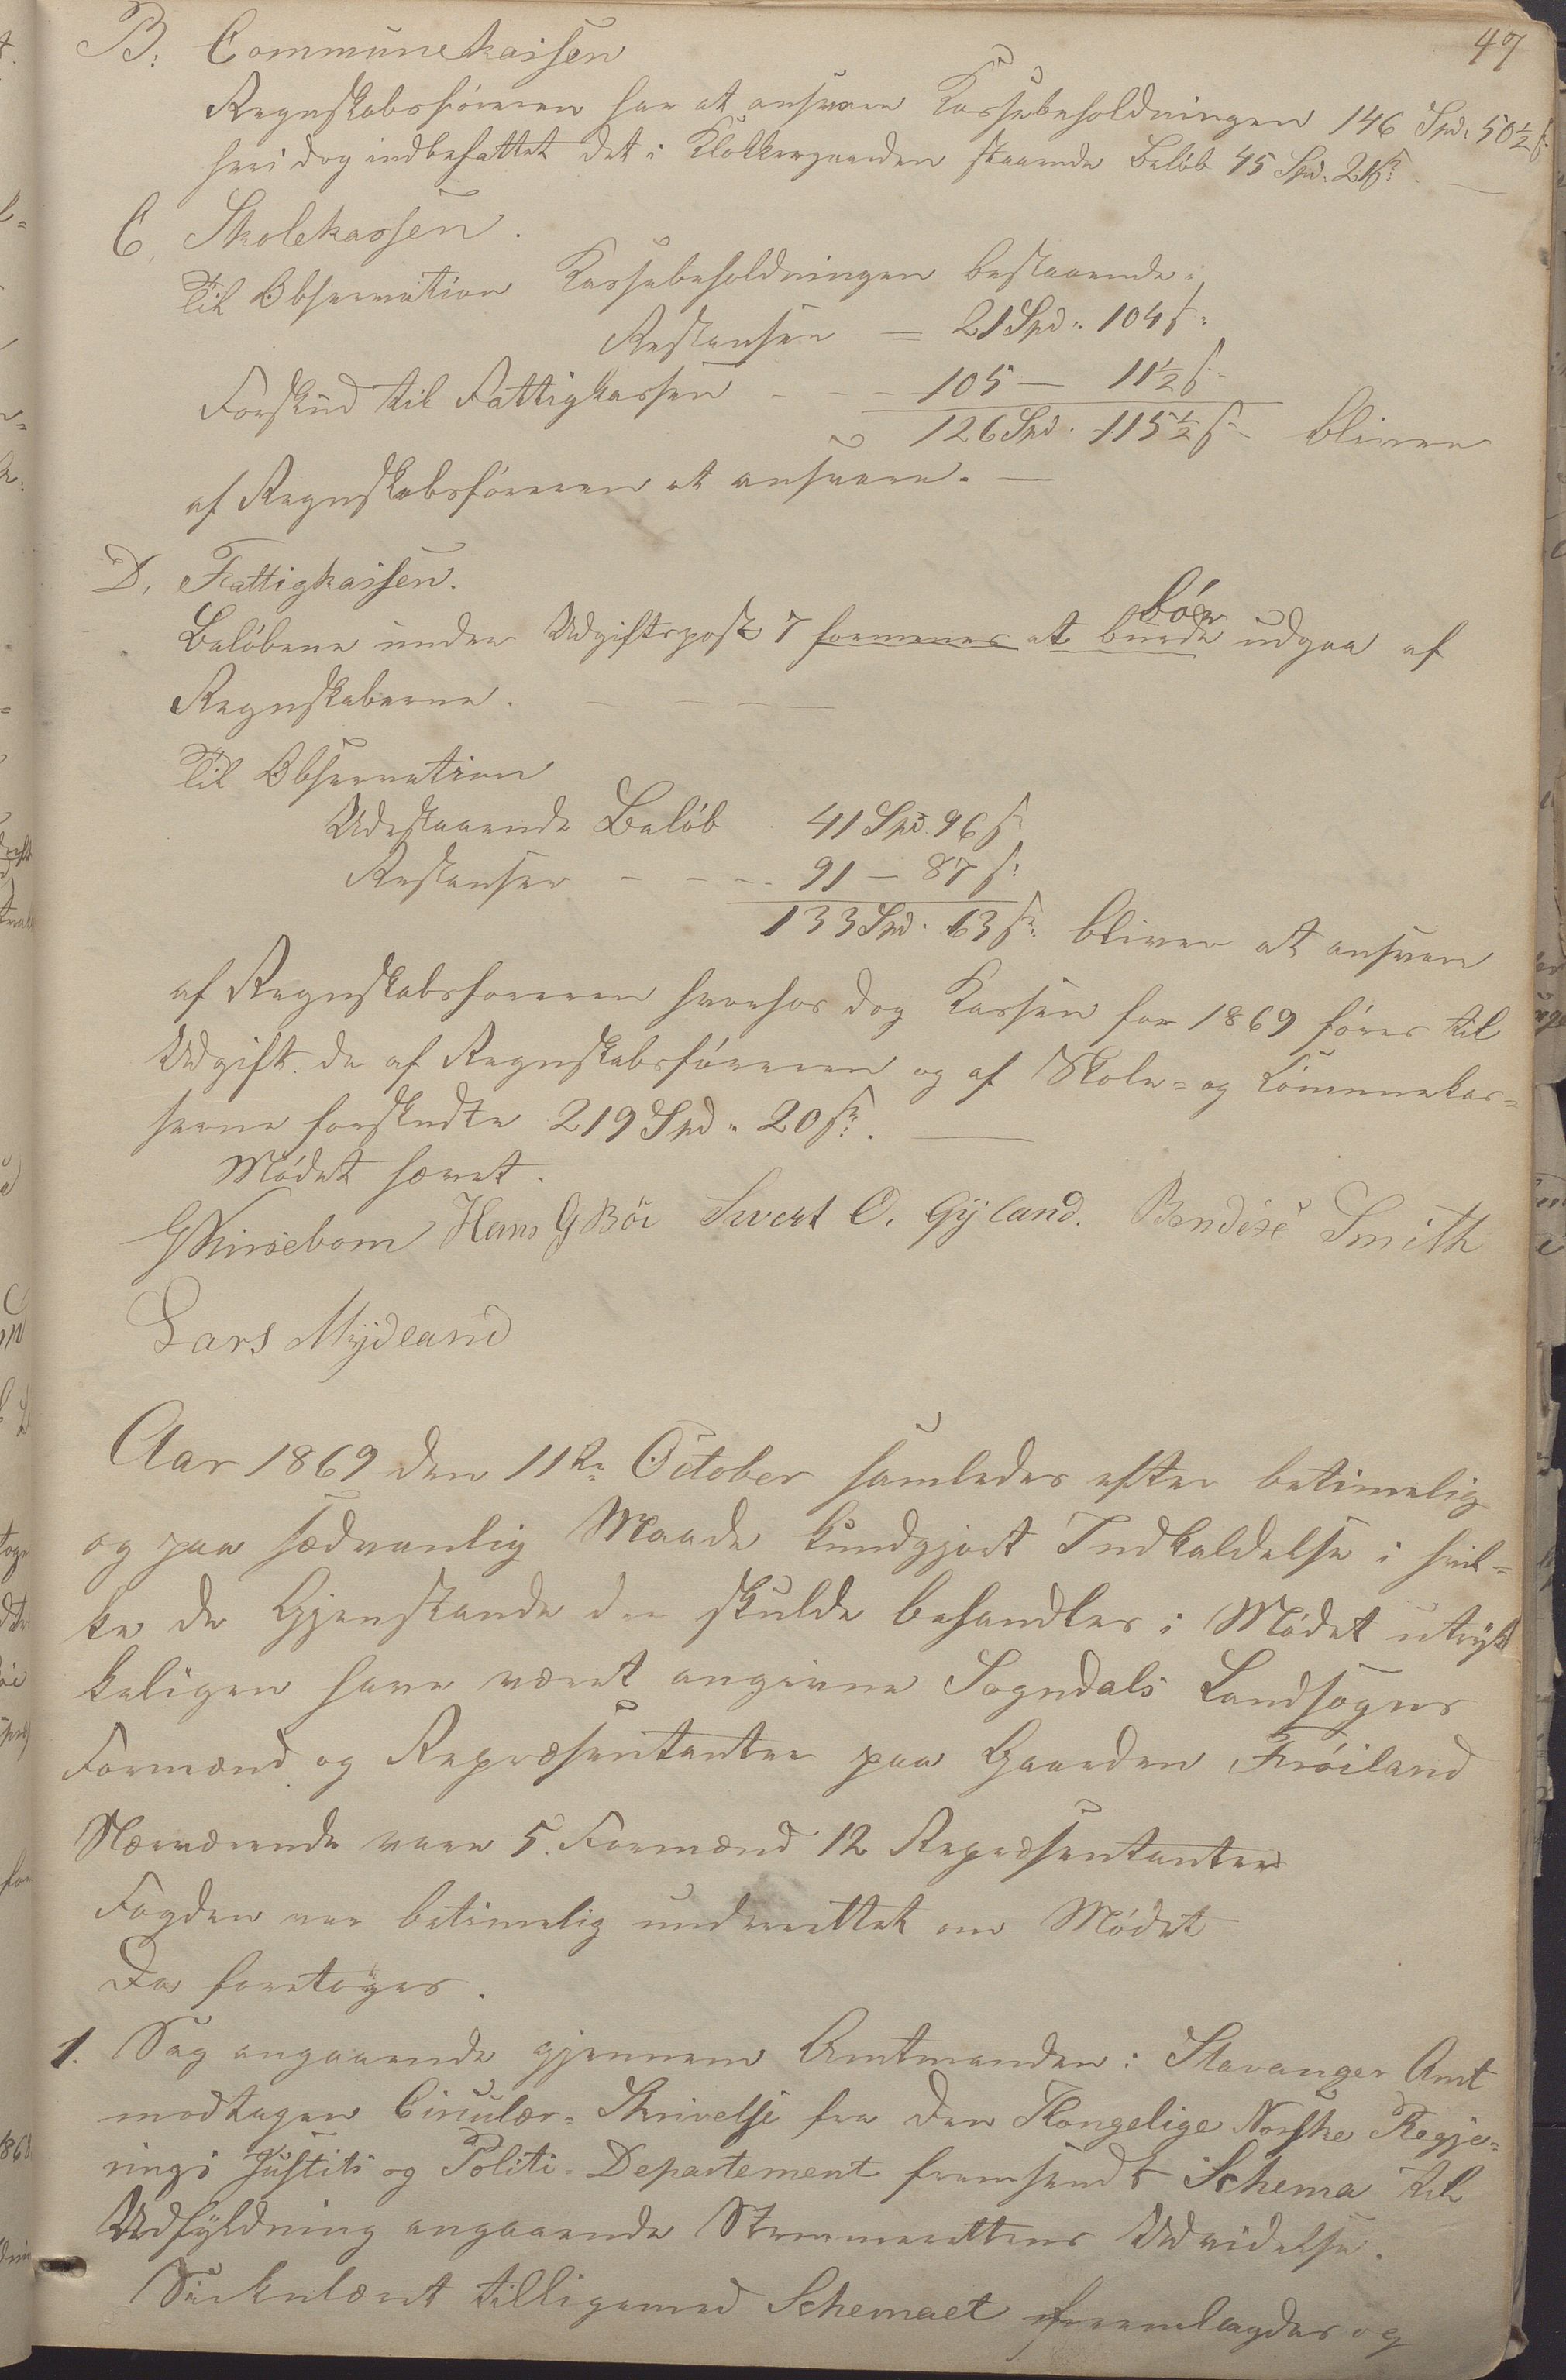 47
B: Communekassen
Regnskabsføreren har at ansvare Kassebeholdningen 146 Spd. 50½ ß.
heri dog indbefattet det i Klokkergaarden staaende Beløb 45 Spd. 21 ß:
C, Skolekassen.
Til Observation Kassebeholdningen bestaaende.
Restanser = 21 Spd. 104 ß:
Forskud til Fattigkassen - - - 105 - 11½ ß
126 Spd. 115½ ß bliver
af Regnskabsføreren at ansvare. —
D, Fattigkassen.
bør
Beløbene under Udgiftspost 7 formenes at burde udgaa af
Regnskaberne.
Til Observation
Udestaaende Beløb 41 Spd. 96 ß
Restanser - - - 91 - 87 ß:
133 Spd. 63 ß: bliver at ansvare
af Regnskabsføreren hvorhos dog Kassen for 1869 føres til
Udgift de af Regnskabsføreren og af Skole- og Communekas-
serne forskudte 219 Spd. 20 ß. —
Mødet hævet.
Hans G Bøe Sivert O. Gÿland. Smith
Lars Mÿdland
Aar 1869 den 11te October samledes efter betimelig
og paa sædvanlig Maade kundgjort Indkaldelse i hvil-
ke de Gjenstande der skulde behandles i Mødet utrÿk
keligen have været angivne Sogndals Landsogns
Formænd og Repræsentanter paa Gaarden Frøiland
Nærværende vare 5. Formænd 12 Repræsentanter
Fogden var betimelig underrettet om Mødet
Da foretoges.
1. Sag angaaende gjennem Amtmanden i Stavanger Amt
modtagen Circulær-Skrivelse fra den Kongelige Norske Regje-
rings Justits og Politi-Departement fremsendt Schema til
Udfÿldning angaaende Stemmerettens Udvidelse.
Sirkulæret tilligemed Schemaet fremlagdes og